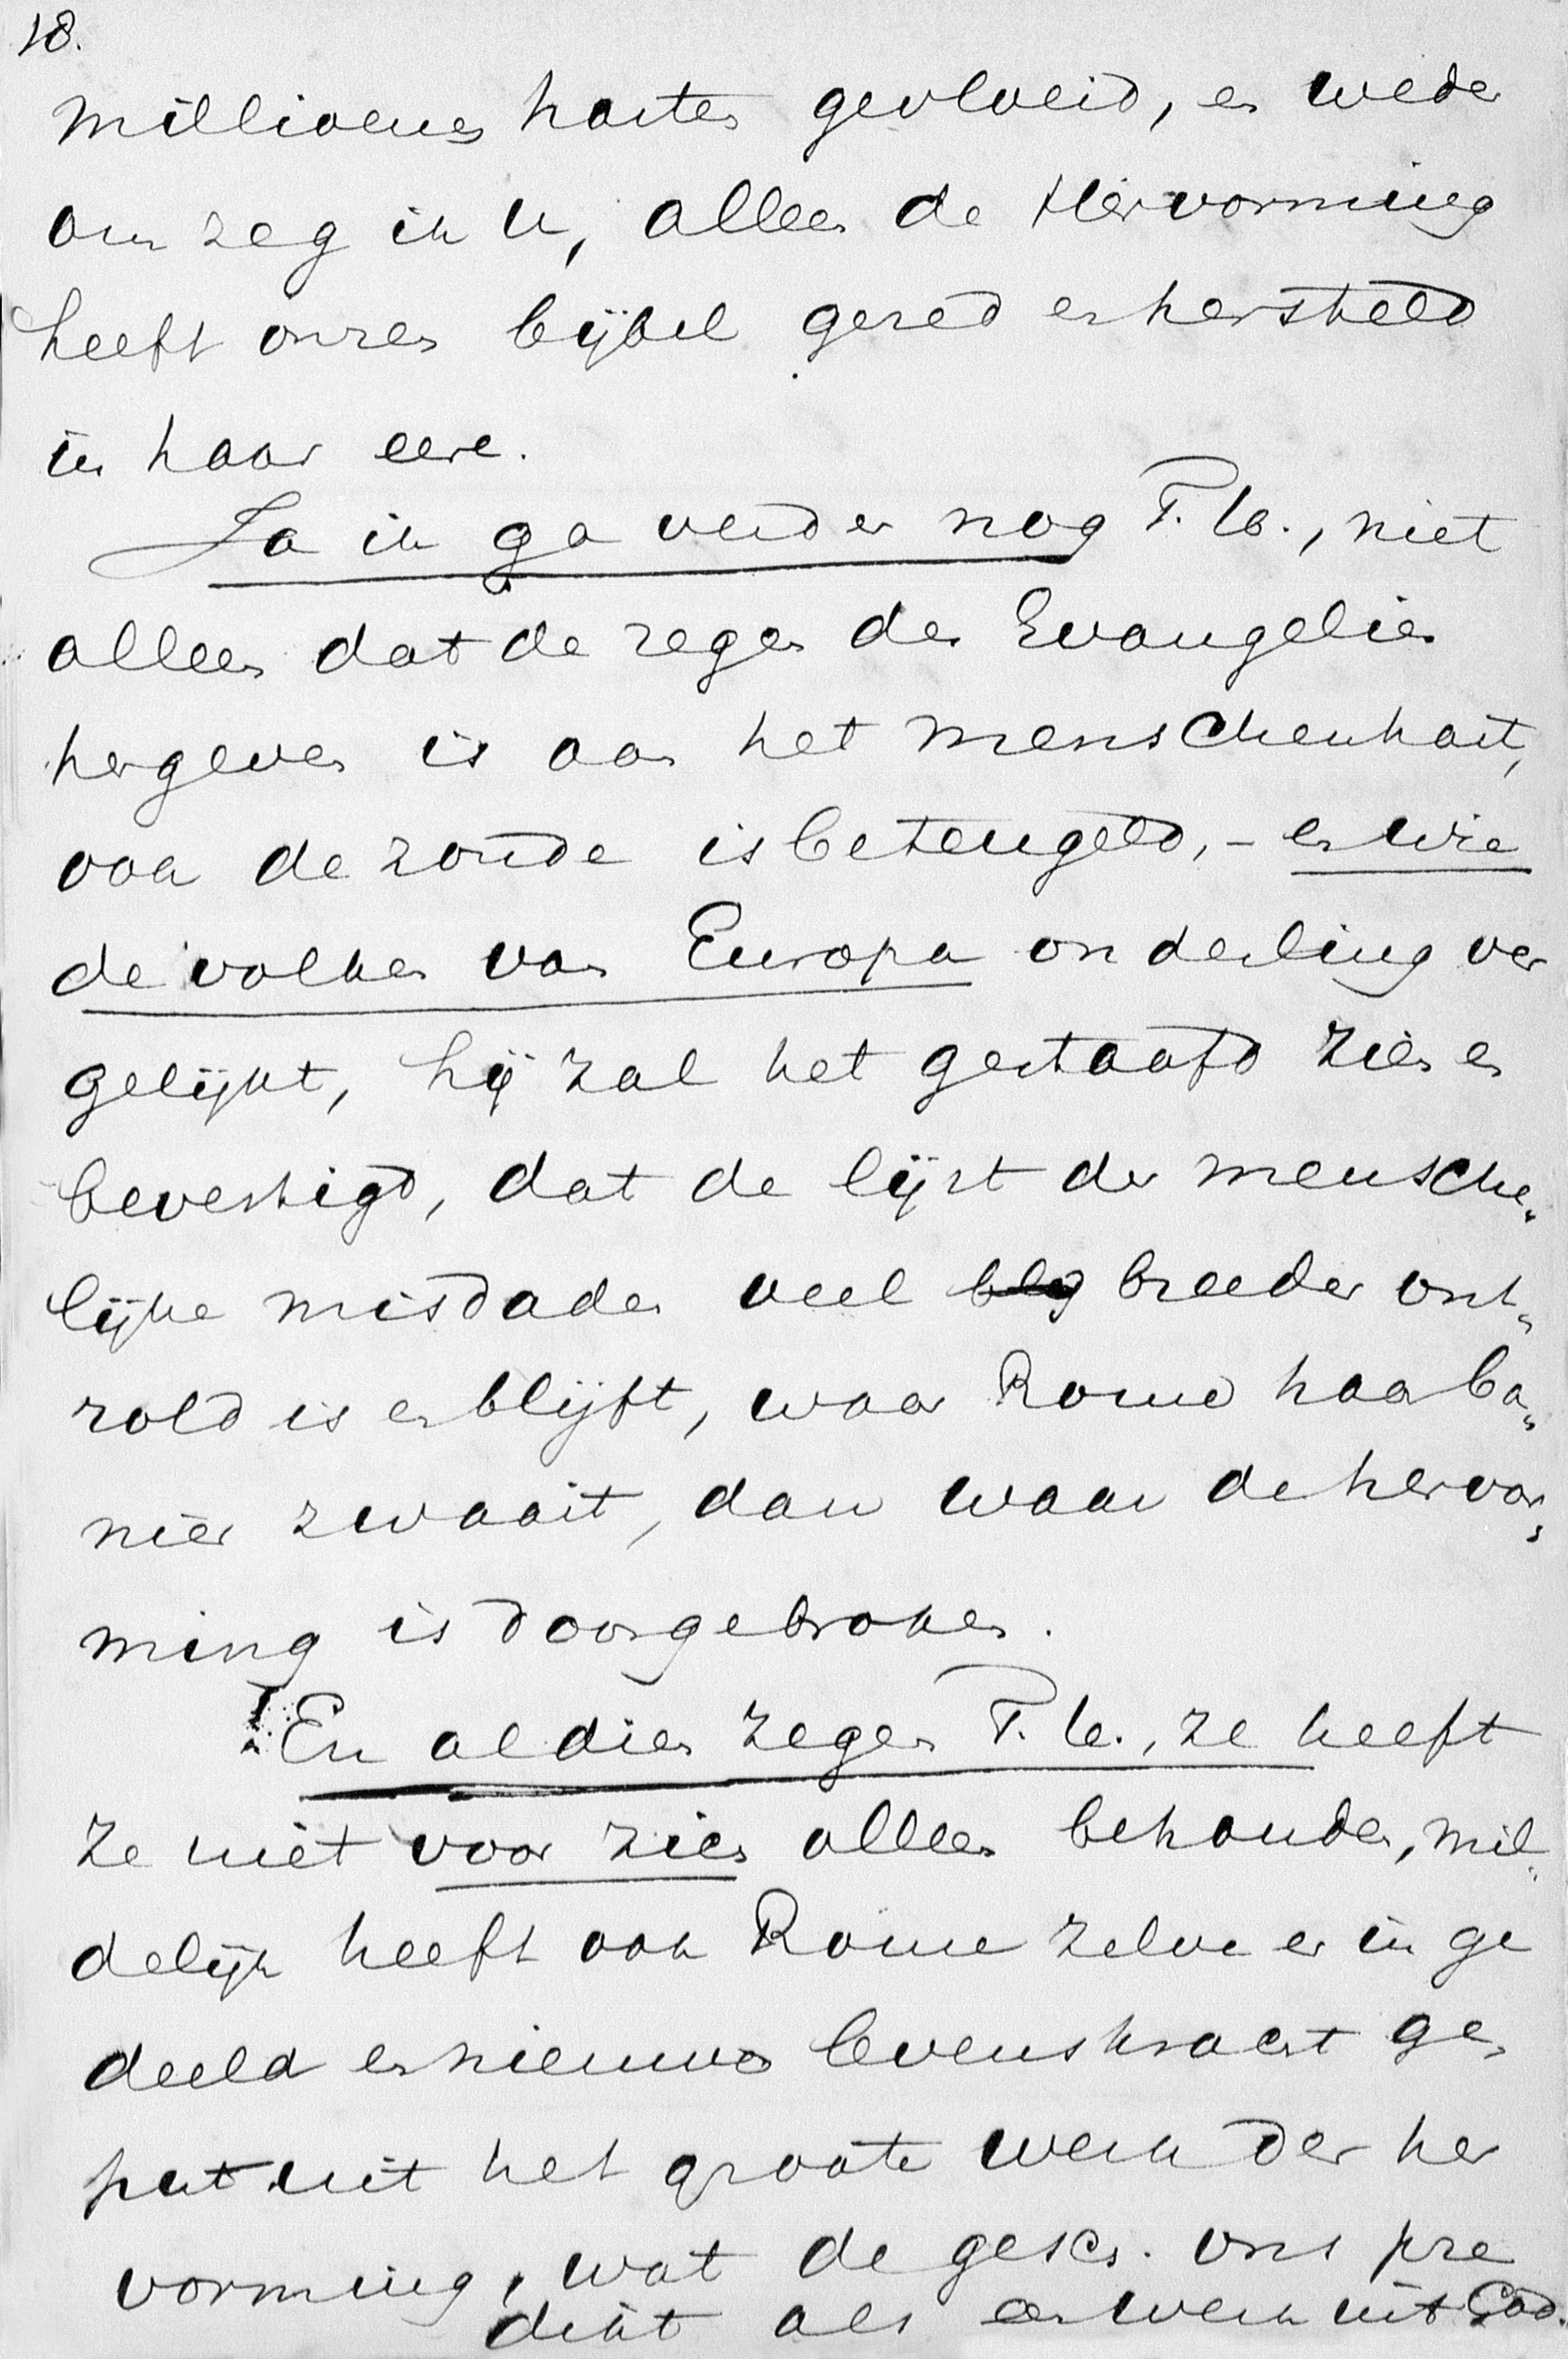 18.
millioenen harten gevloeid, en weder
om zeg ik U, alleen de Hervorming
heeft onzen bijbel gered en hersteld
in haar eere.
Ja ik ga verder nog T. G., niet
alleen dat de zegen der Evangelien
hergeven is aan het menschenhart,
ook de zonde is beteugeld, - en wie
de volken van Europa onderling ver
gelijkt, hij zal het gestaafd zien en
bevestigd, dat de lijst der mensche„
lijke misdaden veel breeder ont„
rold is en blijft, waar Rome haar ba„
nier zwaait, dan waar de hervor„
ming is doorgebroken.
En al dien zegen T. G., ze heeft
ze niet voor zich alleen behouden, mil„
delijk heeft ook Rome zelve er in ge
deeld en nieuwe levenskracht ge„
put uit het groote werk der her
vorming, wat de gesch. ons pre
dikt als een werk uit God.